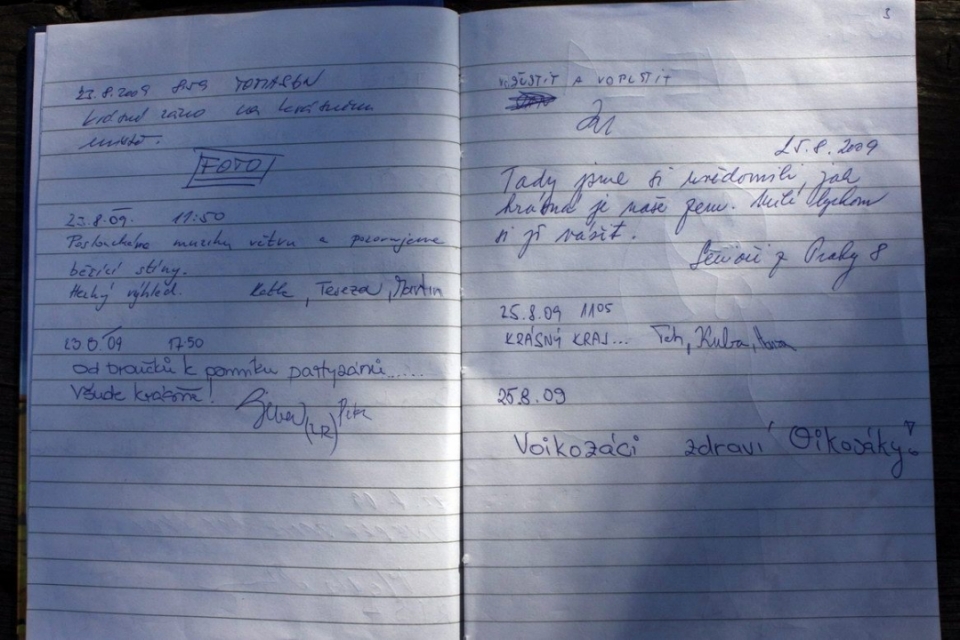 23.8.2009 8:59 TOMÁŠEN
krásné ráno na krásném
místě.
FOTO
23.8.09. 11:50
Posloucháme muziku větru a pozorujeme
běžící stíny.
Hezký výhled. Katka, Tereza, Martin
23.8.09 17:50
od broučků k pomníku partyzánů......
Všude krásně!
Petr
3
A VOPUSTIT
25.8.2009
Tady jsme si uvědomili, jak
krásná je naše zem. Měli bychom
si jí vážit.
Senioři z Prahy 8
25.8.09 11 05
KRÁSNÝ KRAJ... Kuba,
25.8.09
Voikozáci zdraví Oikosáky!